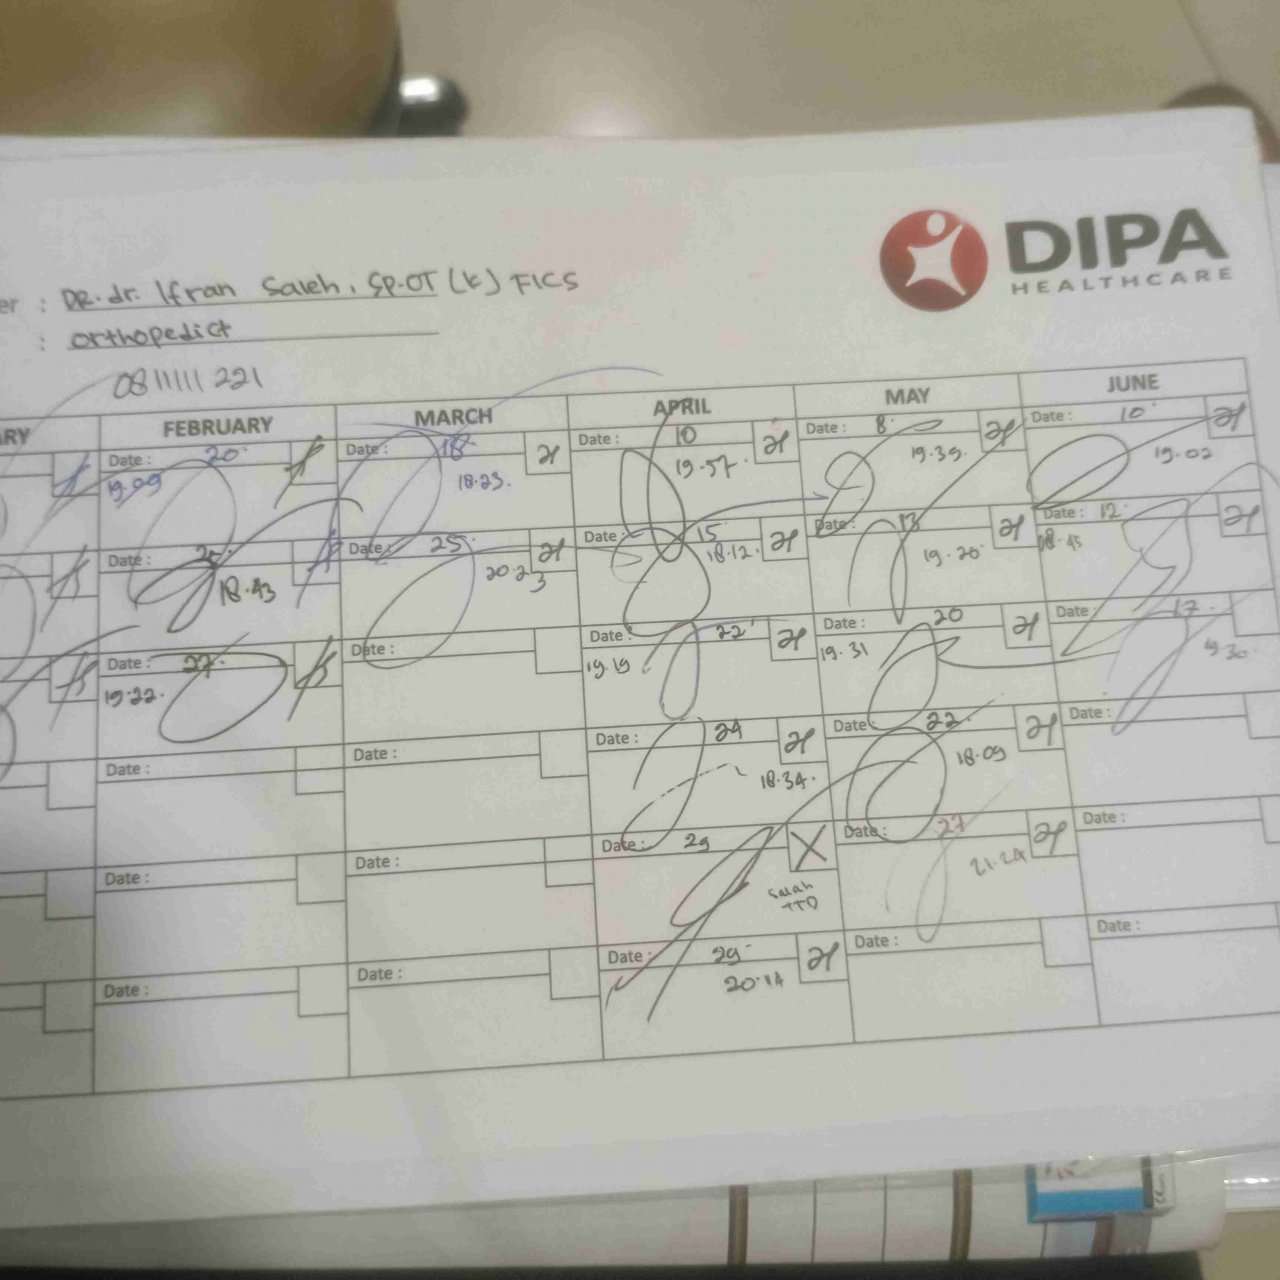 DIPA
HEALTHCARE
er : DR. dr. Ifran Saleh, SP.OT (K) FICS
: Orthopedict
0811111 221
RY FEBRUARY MARCH APRIL MAY JUNE
Date : 20 Date : 18 Date : 10 Date : 8 Date : 10
19.09 18.23. 19.57. 19.39. 19.02
Date : Date : 25 Date : 15 Date : 13 Date : 12
18.43 20.23 18.12. 19.20 18.45
Date : 27. Date : Date : 22 Date : 20 Date : 17.
19.22. 19.19 19.31 19.30
Date : Date : Date : 24 Date : 22 Date :
18.34. 18.09
Date : Date : Date : 29 Date : 27 Date :
Salah
TTD
21.24
Date : Date : Date : 29 Date : Date :
20.14